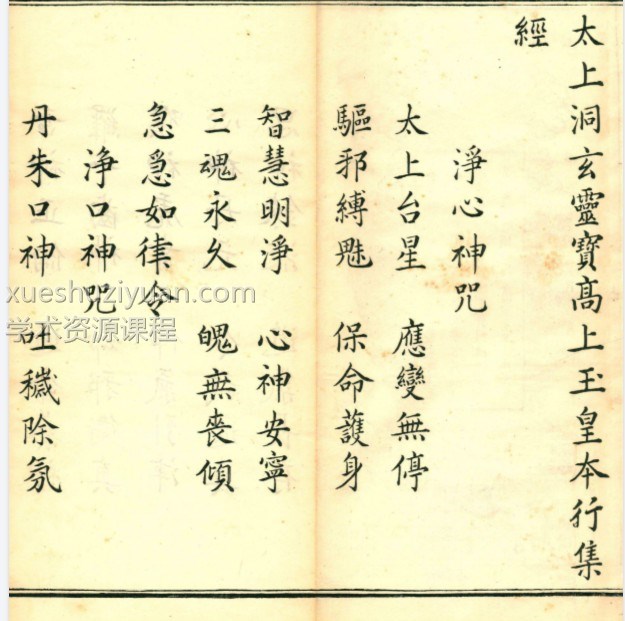 太上洞玄靈寶髙上玉皇本行集
經
淨心神呪
太上台星 應變無停
驅邪縛魅 保命護身
智慧明淨 心神安寧
三魂永久 魄無喪傾
急急如律令
淨口神呪
丹朱口神 吐穢除氛
xueshuziyuan.com
学术资源课程